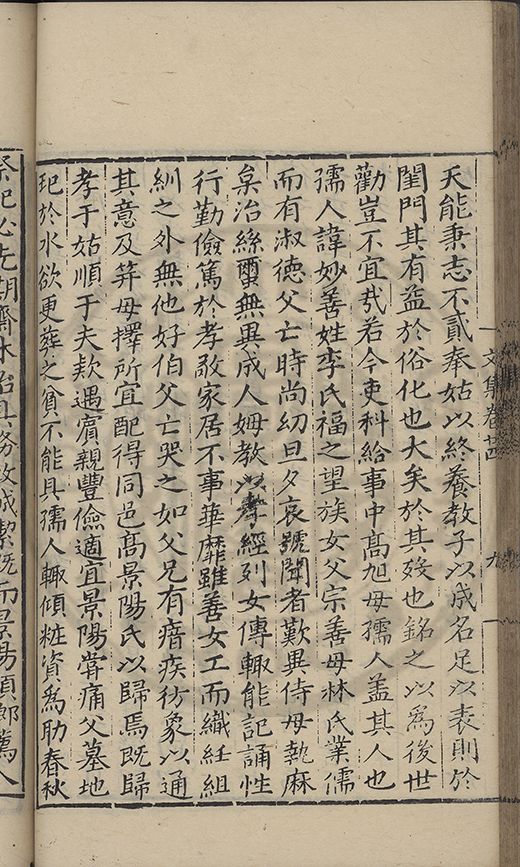 文集卷十四
九
天能秉志不貳奉姑以終養教子以成名足以表則於
閨門其有益於俗化也大矣於其歿也銘之以爲後世
勸豈不宜哉若今吏科給事中髙旭母孺人盖其人也
孺人諱妙善姓李氏福之望族女父宗善母林氏業儒
而有淑德父亡時尚幼旦夕哀號聞者歎異侍母執麻
枲治絲璽無異成人姆教以孝經列女傳輙能記誦性
行勤儉篤於孝敬家居不事華靡雖善女工而織紝組
紃之外無他好伯父亡哭之如父兄有瘖疾彷象以通
其意及笄母擇所宜配得同邑髙景陽氏以歸焉既歸
孝于姑順于夫欵遇賔親豐儉適宜景陽甞痛父墓地
圯於水欲更葬之貧不能具孺人輙傾粧資爲助春秋
祭祀必先期齋沐飴具務致誠潔既而景陽領郎薦入